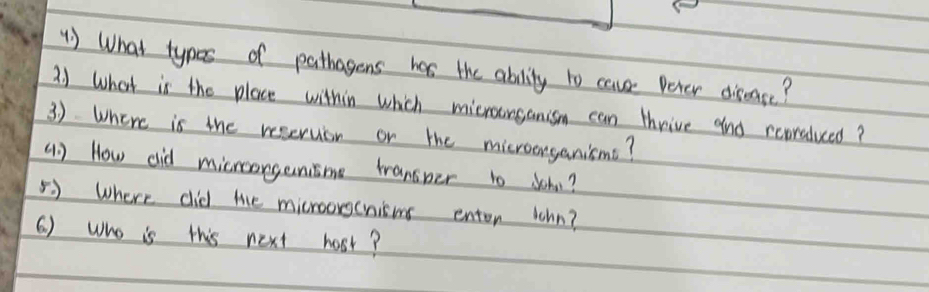 1.) What types of pathogens has the ability to cause Peter disease?
2.) What is the place within which microorganism can thrive and reproduced?
3) Where is the reservoir or the microorganisms?
4.) How did microorganisms transper to John?
5.) Where did the microorganisms enter John?
6.) Who is this next host?